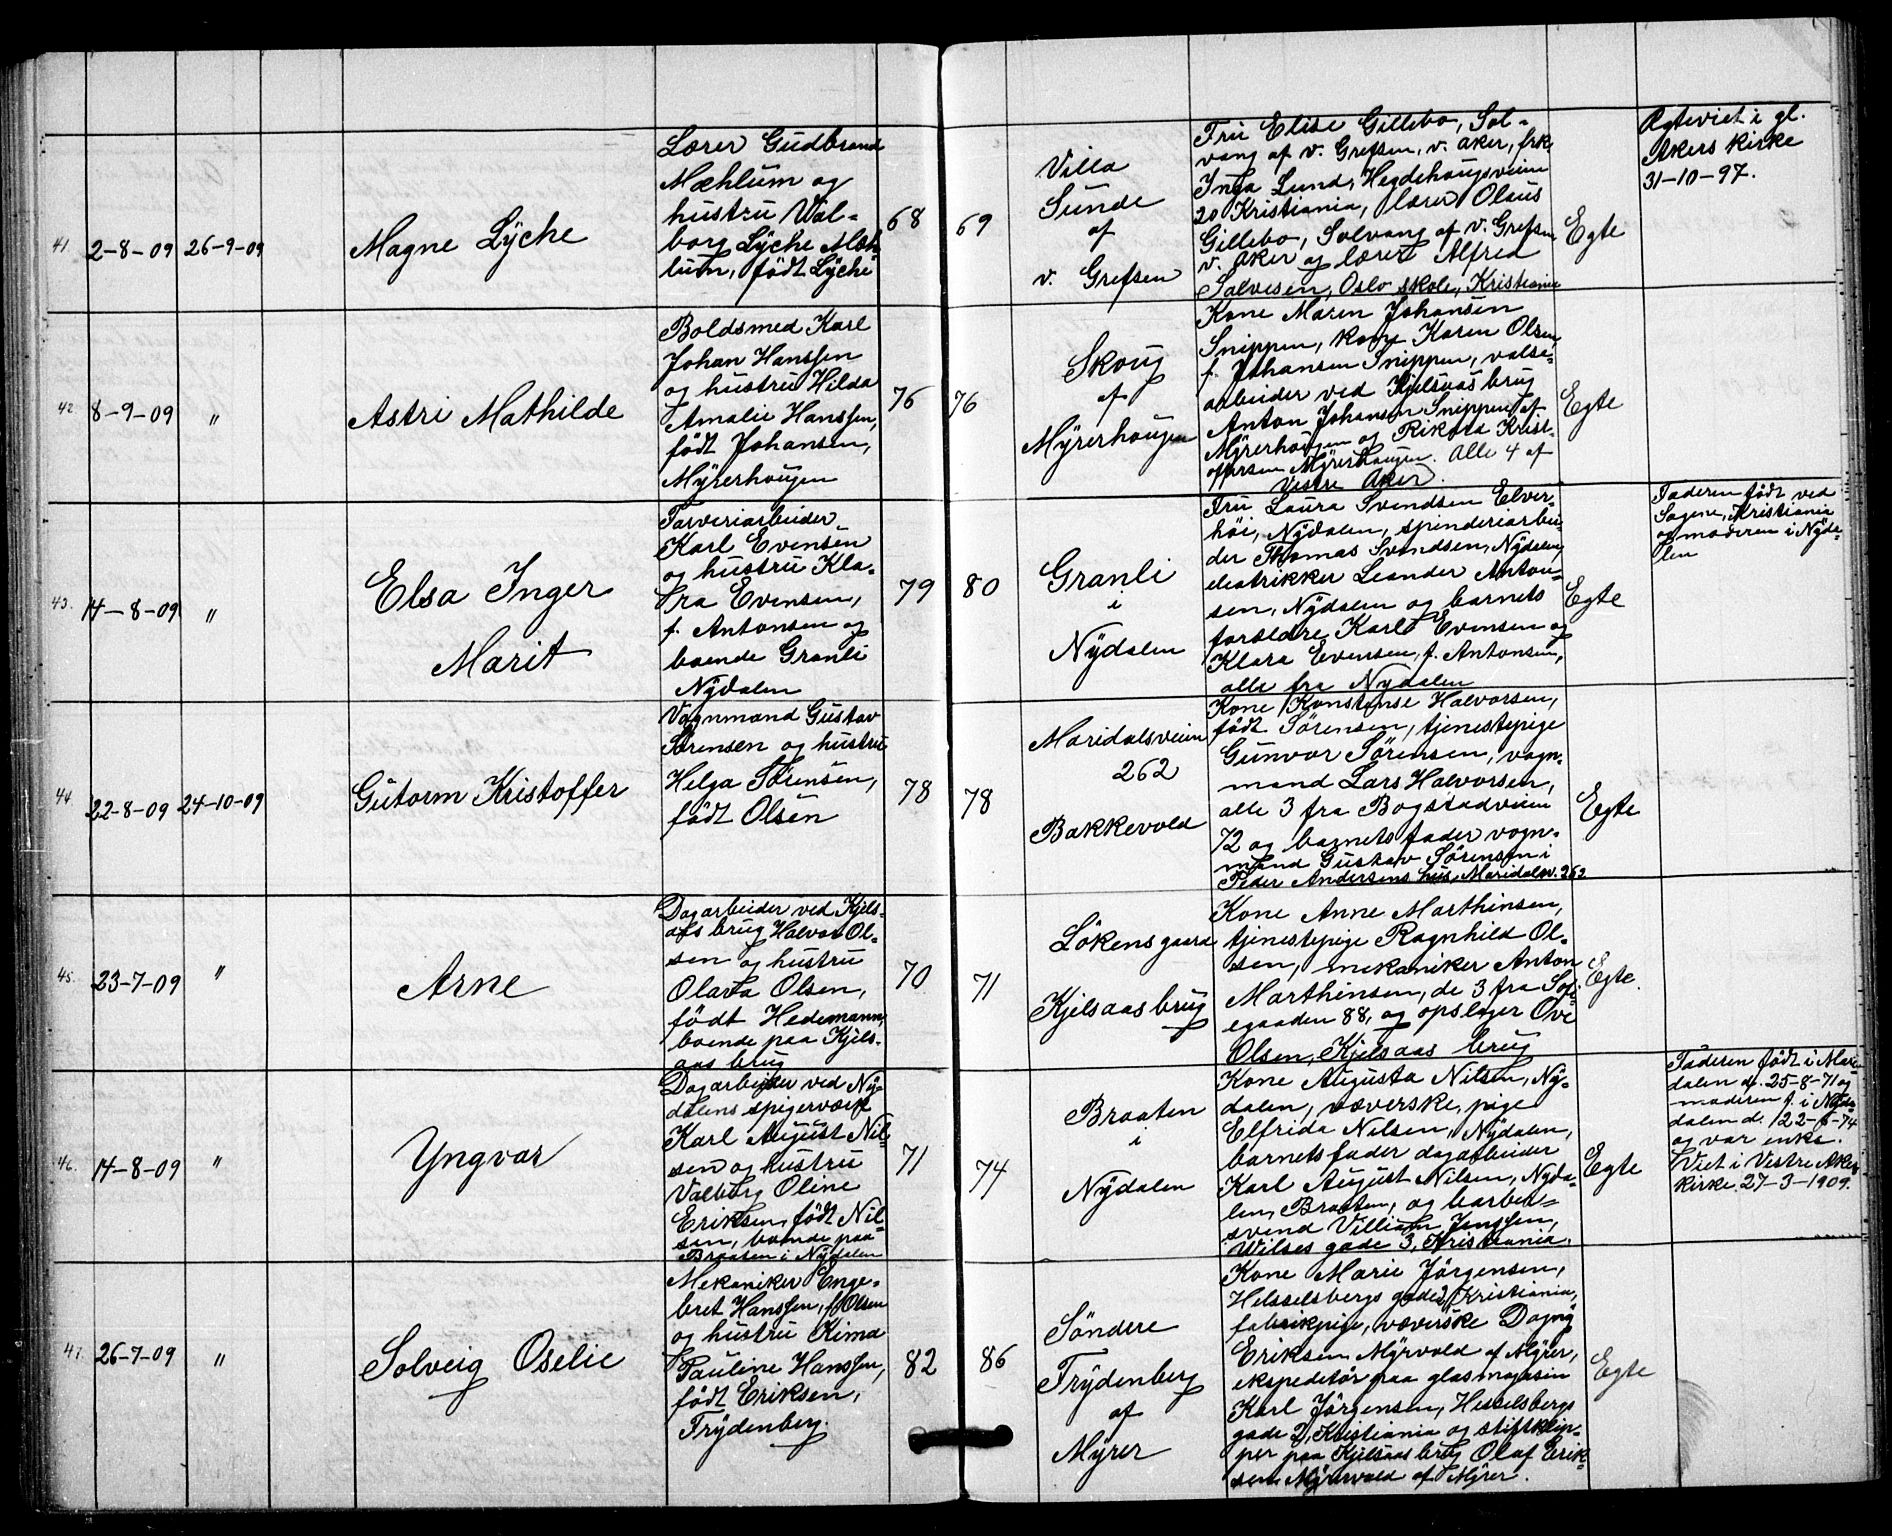 41.
2-8-09
26-9-09
Magne Lÿche
Lærer Gudbrand
Mæhlum og
hustru Val-
borg Lÿche Mæh-
lum, født Lÿche
68
69
Villa
Sunde
af
v. Grefsen
Fru Elise Gillebo, Sol-
vang af v. Grefsen, v. aker, frk.
Inga Lund, Hegdehougsveien
20 Kristiania, lærer Olaus
Gillebo, Solvang af v. Grefsen
v. aker og lærer Alfred
Salvesen, Oslo skole, Kristiania
Egte
Ægteviet i gl.
Akers kirke
31-10-97.
42
8-9-09
"
Astri Mathilde
Boldsmed Karl
Johan Hanssen
og hustru Hilda
Amalie Hanssen,
født Johansen,
Mÿrerhougen
76
76
Skoug
af
Mÿrerhougen
Kone Maren Johansen
Snippen, kone Karen Olsen,
f. Johansen Snippen, valse-
arbeider ved Kjelsaas brug
Anton Johansen Snippen af
Mÿrerhougen og Rikata Krist-
offersen Mÿrerhougen. Alle 4 af
Vestre Aker.
Egte
43.
14-8-09
"
Elsa Inger
Marit
Farveriarbeider
Karl Evensen
og hustru Kla-
ra Evensen,
f. Antonsen og
boende Granli
Nÿdalen
79
80
Granli
i
Nÿdalen
Fru Laura Svendsen Elver-
høi, Nÿdalen, spinderiarbei-
der Thomas Svendsen, Nÿdalen
elektrikker Leander Anton-
sen, Nÿdalen og barnets
forældre Karl Evensen og
Klara Evensen, f. Antonsen,
alle fra Nÿdalen
Egte
Faderen født ved
Sagene, Kristiania
og moderen i Nÿda-
len
44.
22-8-09
24-10-09
Gutorm Kristoffer
Vognmand Gustav
Sørensen og hustru
Helga Sørensen,
født Olsen
78
78
Maridalsveien
262
Bakkevold
Kone Konstanse Halvorsen,
født Sørensen, tjenestepige
Gunvor Sørensen, vogn-
mand Lars Halvorsen,
alle 3 fra Bogstadveien
72 og barnets fader vogn-
mand Gustav Sørensen i
Peder Andersens hus, Maridalsv. 262
Egte
45.
23-7-09
"
Arne
Dagarbeider ved Kjels-
aas brug Halvor Ol-
sen og hustru
Olava Olsen,
født Hedemann,
boende paa Kjels-
aas brug
70
71
Løkensgaard
Kjelsaas brug
Kone Anne Marthinsen,
tjenestepige Ragnhild Ol-
sen, mekaniker Anton
Marthinsen, de 3 fra Sofi-
egaaden 88, og opslager Ove
Olsen, Kjelsaas brug
Egte.
46.
14-8-09
"
Yngvar
Dagarbeider ved Nÿ-
dalens spigerværk
Karl August Nil-
sen og hustru
Valborg Oline
Eriksen, født Nil-
sen, boende paa
Braaten i Nÿdalen
71
74
Braaten
i
Nÿdalen
Kone Augusta Nilsen, Nÿ-
dalen, væverske, pige
Elfrida Nilsen, Nÿdalen,
barnets fader dagarbeider
Karl August Nilsen, Nÿda-
len, Braaten, og barber-
svend Villiam Janssen,
Wilses gade 3, Kristiania.
Egte
Faderen født i Mari-
dalen d. 25-8-71 og
moderen f. i Nÿda-
dalen d. 22-6-74
og var enke.
Viet i Vestre Akers
kirke 27-3-1909.
47.
26-7-09
"
Solveig Oselie
Mekaniker Enge-
bret Hanssen, f. Olsen
og hustru Kima
Pauline Hanssen,
født Eriksen,
Frÿdenberg.
82
86
Søndere
Frÿdenberg
af
Mÿrer
Kone Marie Jørgensen,
Hesselsbergs gade 2, Kristiania,
fabrikpige, væverske Dagnÿ
Eriksen Mÿrvold af Mÿrer,
ekspeditør paa glasmagasin
Karl Jørgensen, Hesselsbergs
gade 2, Kristiania og stiftklip-
per paa Kjelsaas brug Olaf Erik-
sen Mÿrervold af Mÿrer.
Egte